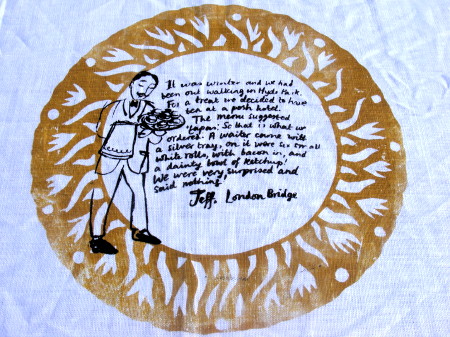 It was winter and we had
been out walking in Hyde Park.
For a treat we decided to have
tea at a posh hotel.
The menu suggested
'Lapan'. So that is what we
ordered. A waiter came with
a silver tray, on it were six small
white rolls, with bacon in, and
a dainty bowl of ketchup!
We were very surprised and
said nothing
Jeff, London Bridge